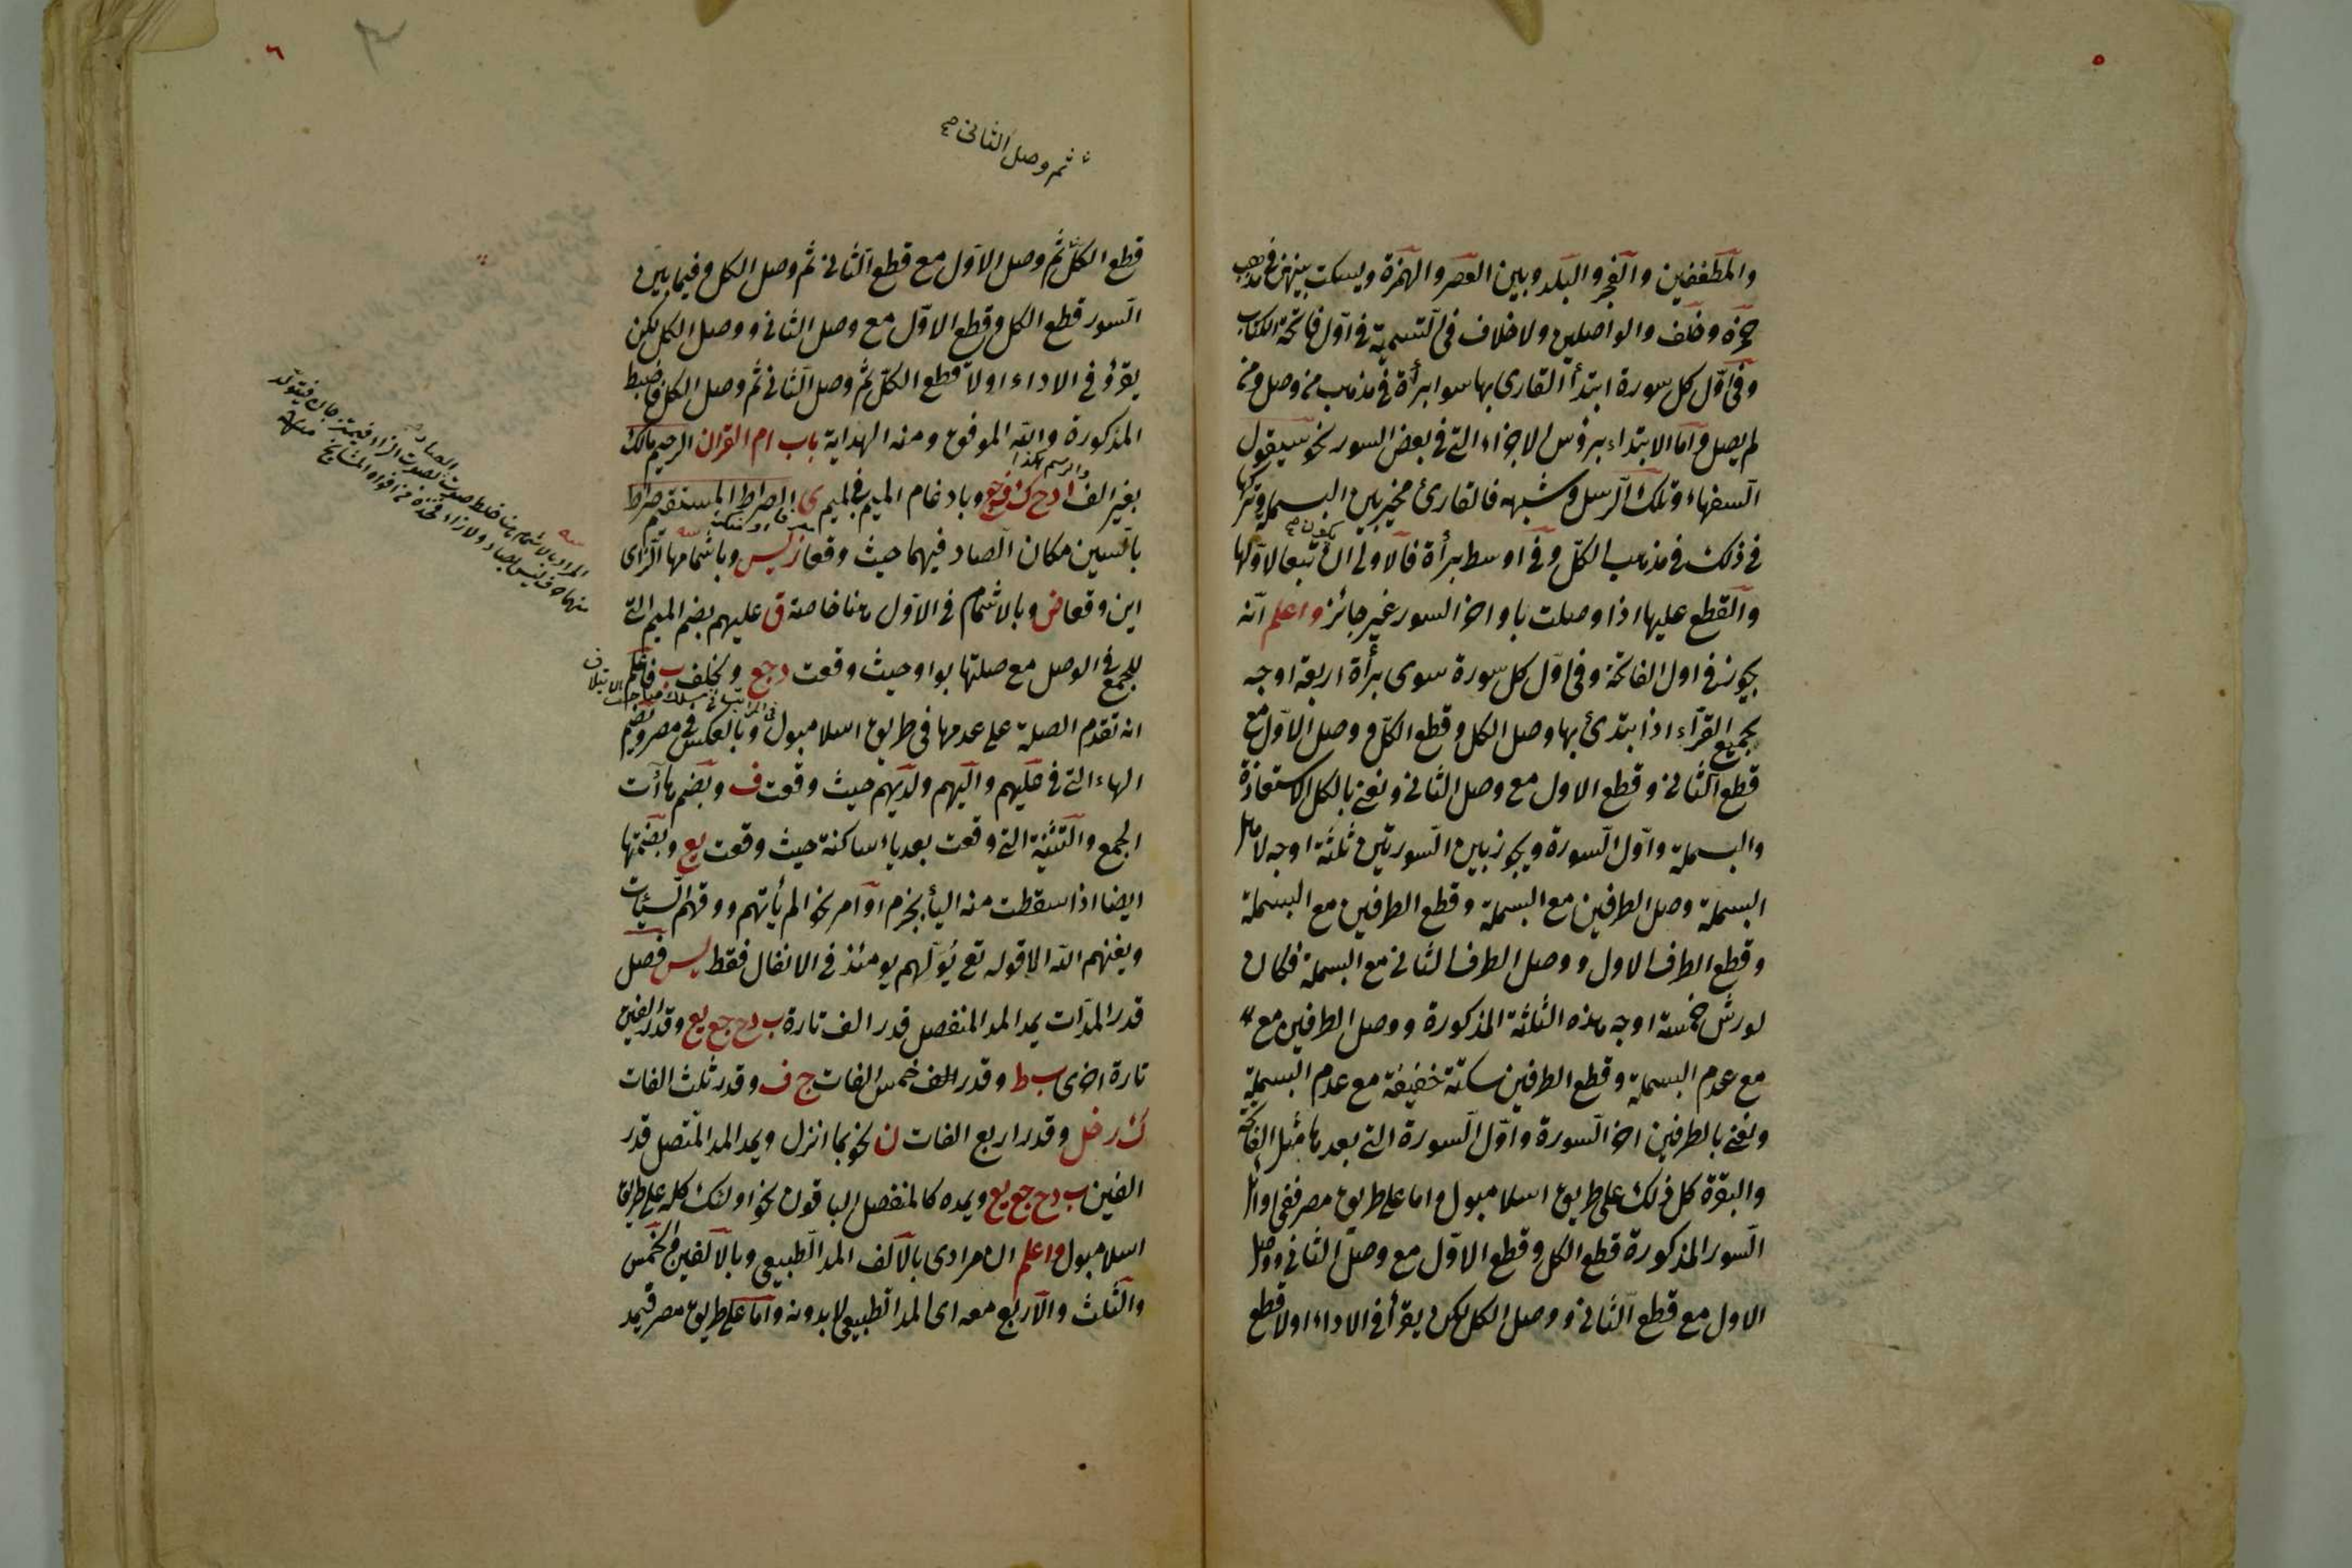 ٥
والمطففين والفجر والبلد وبين العصر والهمزة ويسكت بينهن في مذهب
حمزة وخلف والواصلين ولا خلاف في التسمية في اول فاتحة الكتاب
وفي اول كل سورة ابتدأ القارى بها سوا برأة في مذهب من وصل ومن
لم يصل واما الابتداء برؤس الاجزاء التي في بعض السور نحو سيقول
السفهاء وتلك الرسل وشبهه فالقارئ مخير بين البسملة وتركها
في ذلك في مذهب الكل وفي اوسط برأة فالاولى ان يكون تبعا لاولها
والقطع عليها اذا وصلت باواخر السور غير جائز واعلم انه
يجوز في اول الفاتحة وفي اول كل سورة سوى برأة اربعة اوجه
لجميع القراء اذا ابتدئ بها وصل الكل وقطع الكل ووصل الاول مع
قطع الثاني وقطع الاول مع وصل الثاني ونعني بالكل الاستعاذة
والبسملة واول السورة ويجوز بين السورتين ثلثة اوجه لاهل
البسملة وصل الطرفين مع البسملة وقطع الطرفين مع البسملة
وقطع الطرف الاول ووصل الطرف الثاني مع البسملة فكان
لورش خمسة اوجه هذه الثلثة المذكورة ووصل الطرفين مع
مع عدم البسملة وقطع الطرفين سكتة خفيفة مع عدم البسملة
ونعني بالطرفين اخر السورة واول السورة التي بعدها مثل الفاتحة
والبقرة كل ذلك على طريق اسلامبول واما على طريق مصر ففي اوائل
السور المذكورة قطع الكل وقطع الاول مع وصل الثاني ووصل
الاول مع قطع الثاني ووصل الكل لكن يقرأ في الاداء اولا قطع
٦
ثم وصل الثاني صح
قطع الكل ثم وصل الاول مع قطع الثاني ثم وصل الكل وفيما بين
السور قطع الكل وقطع الاول مع وصل الثاني ووصل الكل لكن
يقرؤ في الاداء اولا قطع الكل ثم وصل الثاني ثم وصل الكل فاضبط
المذكورة والله الموفق ومنه الهداية باب ام القران الرحيم مالك
والرسم هكذا
بغير الف ا دح ك ف جع وبادغام الميم في الميم ى الصراط المستقيم صراط
بالسين مكان الصاد فيهما حيث وقعا ز يس وباشمامها الزاى
اين وقعا ض وبالاشمام في الاول هنا خاصة ق عليهم بضم الميم التي
للجمع في الوصل مع صلتها بواو حيث وقعت د جع وبخلف ب فاعلم
انه تقدم الصلة على عدمها في طريق اسلامبول وبالعكس في مصر وبضم
الهاء التي في عليهم واليهم ولديهم حيث وقعت ف وبضم هاآت
الجمع والتثنية التي وقعت بعد ياء ساكنة حيث وقعت يع وبضمها
ايضا اذا سقطت منه اليأ بجزم او امر نحو الم يأتهم ووقهم السيئات
ويغنهم الله الا قوله تع يولهم يومئذ في الانفال فقط يس فصل
قدر المدات يمد المد المنفصل قدر الف تارة ب دح جع يع وقدر الفين
تارة اخرى ب ط وقدر الف خمس الفات ج ف وقدر ثلث الفات
ك ر خل وقدر اربع الفات ن نحو بما انزل ويمد المد المتصل قدر
الفين ب دح جع يع ويمده كالمنفصل الباقون نحو اولئك كله على طريق
اسلامبول واعلم ان مرادى بالالف المد الطبيعي وبالالفين والخمس
والثلث والاربع معه اى المد الطبيعي لا بدونه واما على طريق مصر فيمد